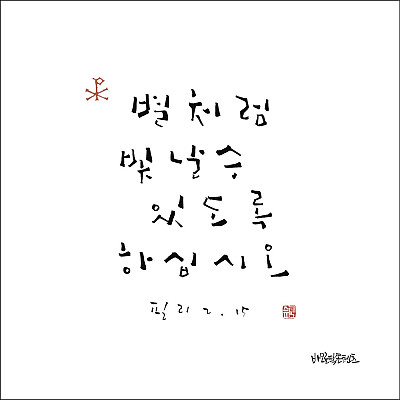 별처럼
빛날 수
있도록
하십시오
필리 2, 15